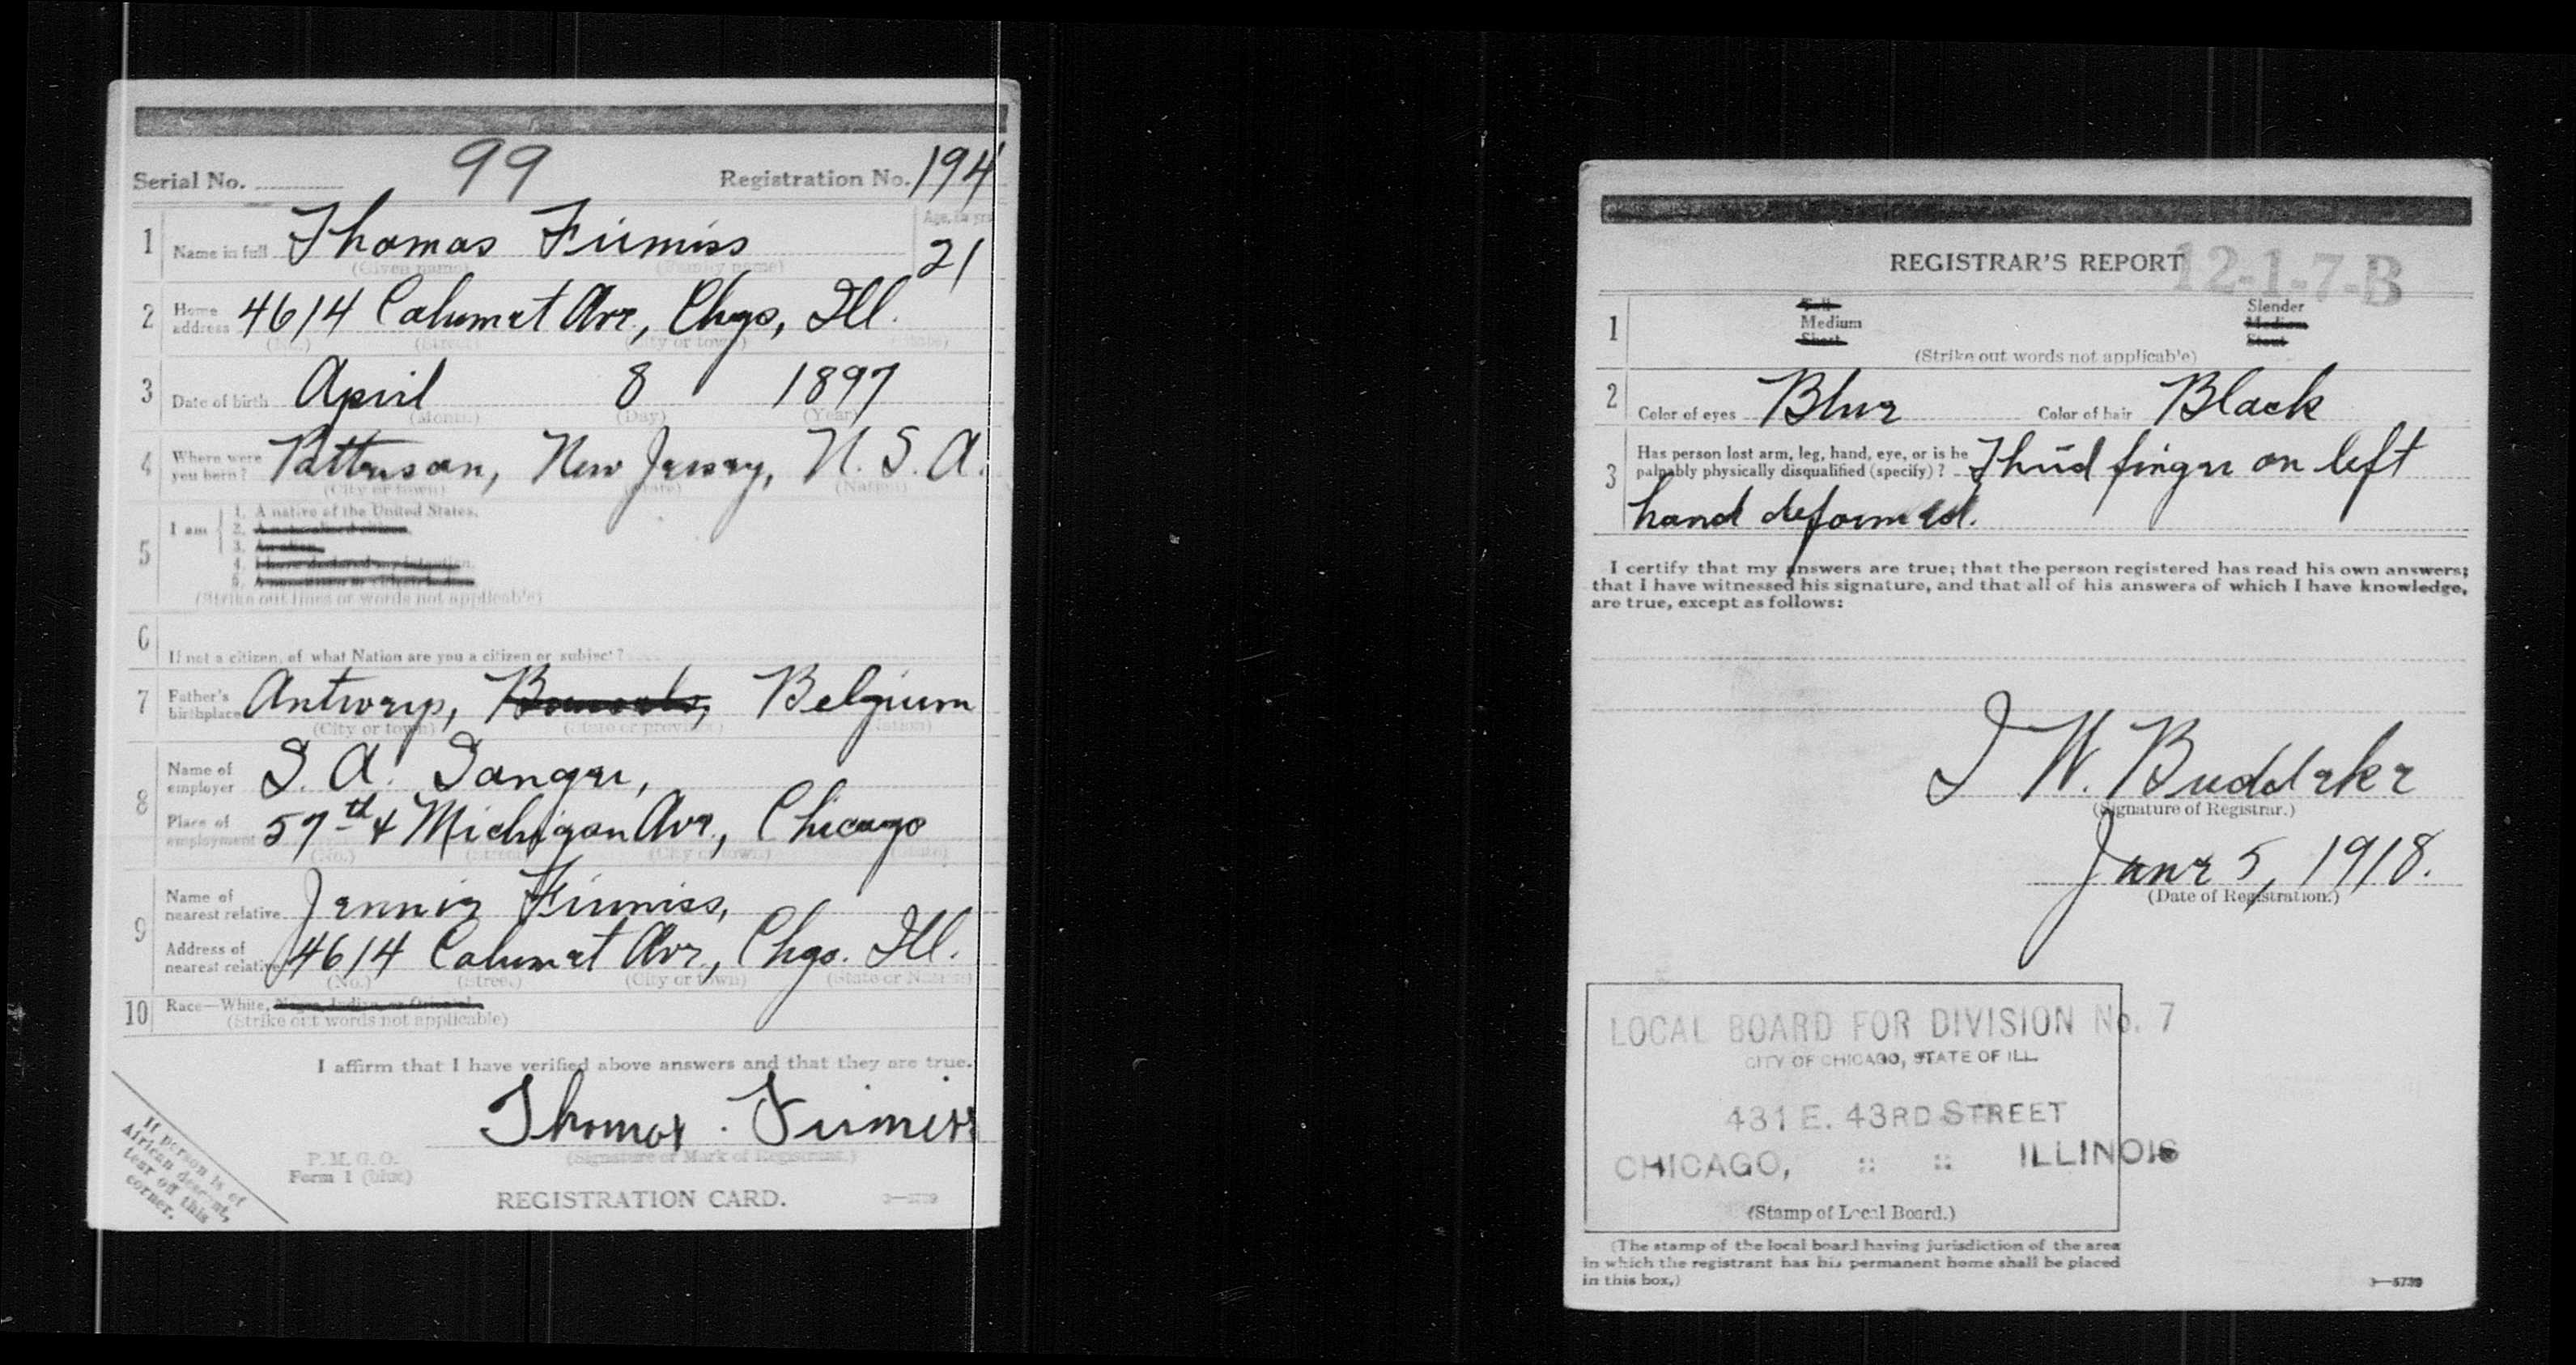 Serial No. 99 Registration No. 194
1 Name in full Thomas Firmiss Age, in yrs 21
(Given name) (Family name)
2 Home address 4614 Calumet Ave, Chgo, Ill.
(No.) (Street) (City or town) (State)
3 Date of birth April 8 1897
(Month) (Day) (Year)
4 Where were you born? Patterson, New Jersey, U. S. A.
(City or town) (State) (Nation)
5 I am
1. A native of the United States.
2. A naturalized citizen.
3. An alien.
4. I have declared my intention.
5.
(Strike out lines or words not applicable)
6 If not a citizen, of what Nation are you a citizen or subject?
7 Father's birthplace Antwerp, Belgium
(City or town) (State or province) (Nation)
8 Name of employer S. A. Sanger,
Place of employment 57th & Michigan Ave., Chicago
(No.) (Street) (City or town) (State)
9 Name of nearest relative Jennie Firmiss,
Address of nearest relative 4614 Calumet Ave., Chgo. Ill.
(No.) (Street) (City or town) (State or Nation)
10 Race—White, Negro, Indian, or Oriental
(Strike out words not applicable)
I affirm that I have verified above answers and that they are true.
Thomas Firmiss
(Signature or Mark of Registrant.)
P. M. G. O.
Form 1 (blue)
REGISTRATION CARD. 3—5739
If person is of
African descent,
tear off this
corner.
REGISTRAR'S REPORT 12-1-7-B
1 Tall Slender
Medium Medium
Short Stout
(Strike out words not applicable)
2 Color of eyes Blue Color of hair Black
3 Has person lost arm, leg, hand, eye, or is he
palpably physically disqualified (specify)? Third finger on left
hand deformed.
I certify that my answers are true; that the person registered has read his own answers;
that I have witnessed his signature, and that all of his answers of which I have knowledge,
are true, except as follows:
I W. Buddeke
(Signature of Registrar.)
June 5, 1918.
(Date of Registration.)
LOCAL BOARD FOR DIVISION No. 7
CITY OF CHICAGO, STATE OF ILL.
431 E. 43RD STREET
CHICAGO, :: :: ILLINOIS
(Stamp of Local Board.)
(The stamp of the local board having jurisdiction of the area
in which the registrant has his permanent home shall be placed
in this box.)
3—5739